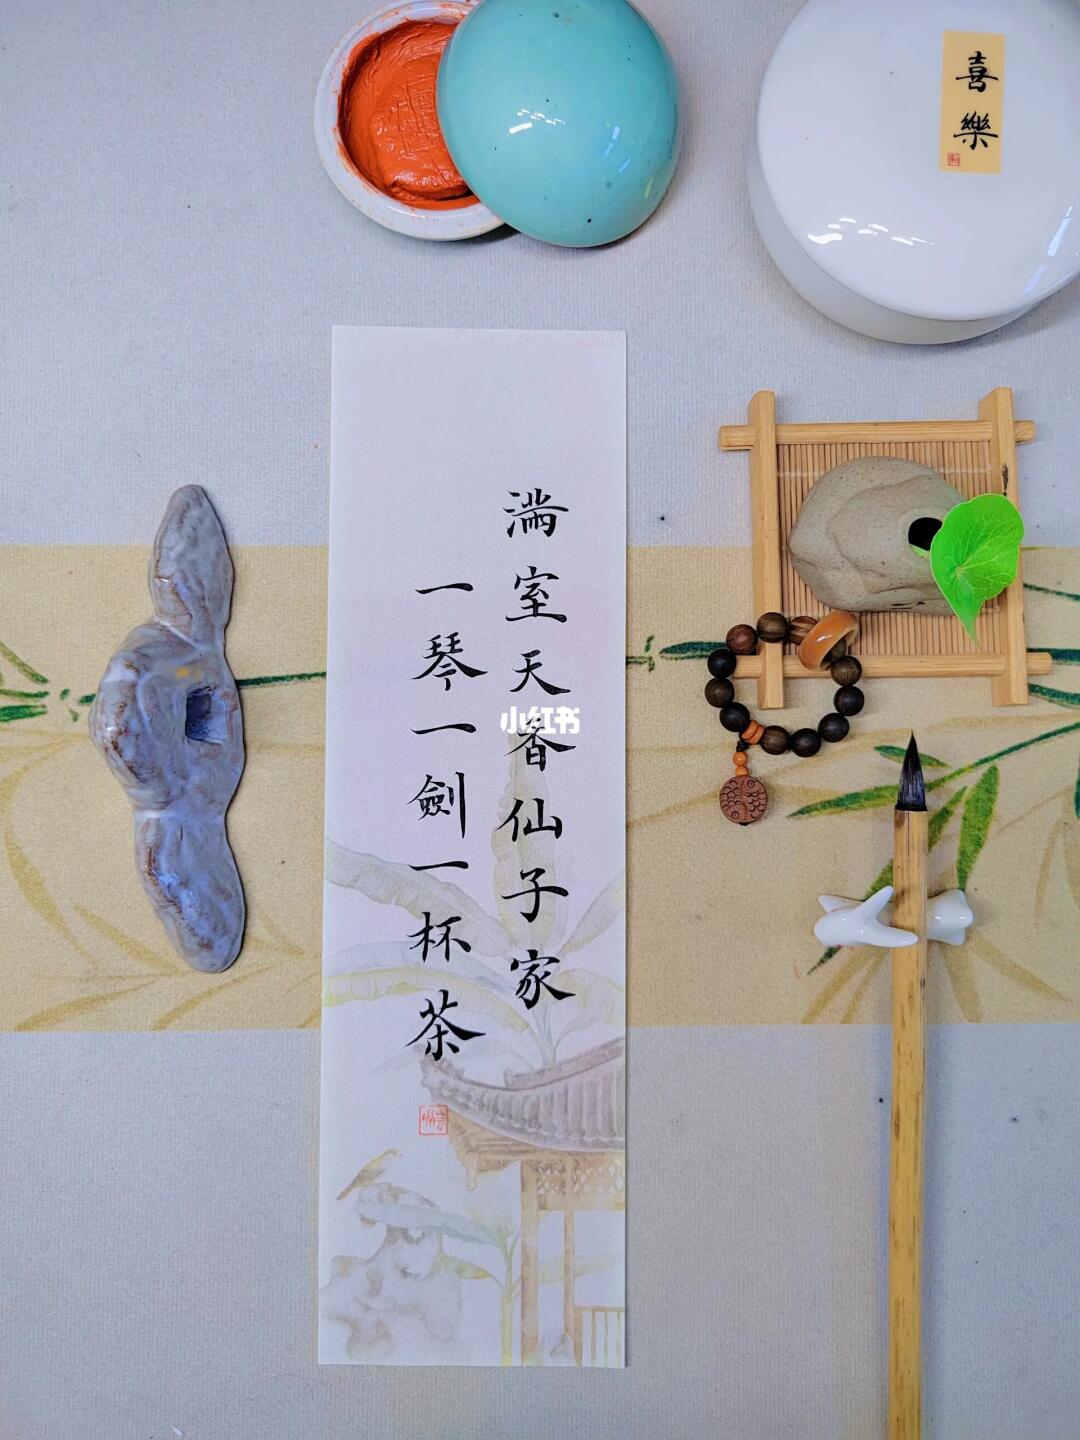 喜樂
满室天香仙子家
一琴一劍一杯茶
小红书